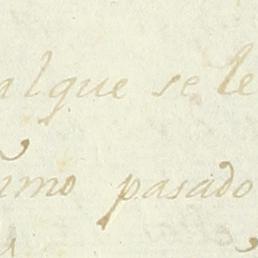 alque se le
imo pasado